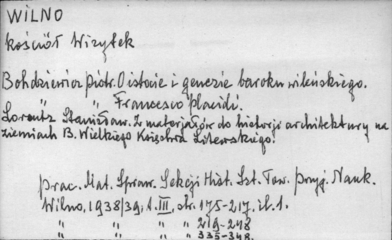 WILNO
Kościół Wizytek
Bohdziewicz Piotr. O istocie i genezie baroku wileńskiego.
" " Francesco Placidi.
Lorentz Stanisław. Z materjałów do historji architektury na
ziemiach B. Wielkiego Księstwa Litewskiego.
Prac. Mat. Spraw. Sekcji Hist. Szt. Tow. Przyj. Nauk.
Wilno, 1938/39, t. III, str. 175-217, il. 1.
" " " " 219-248
" " " " 335-348.